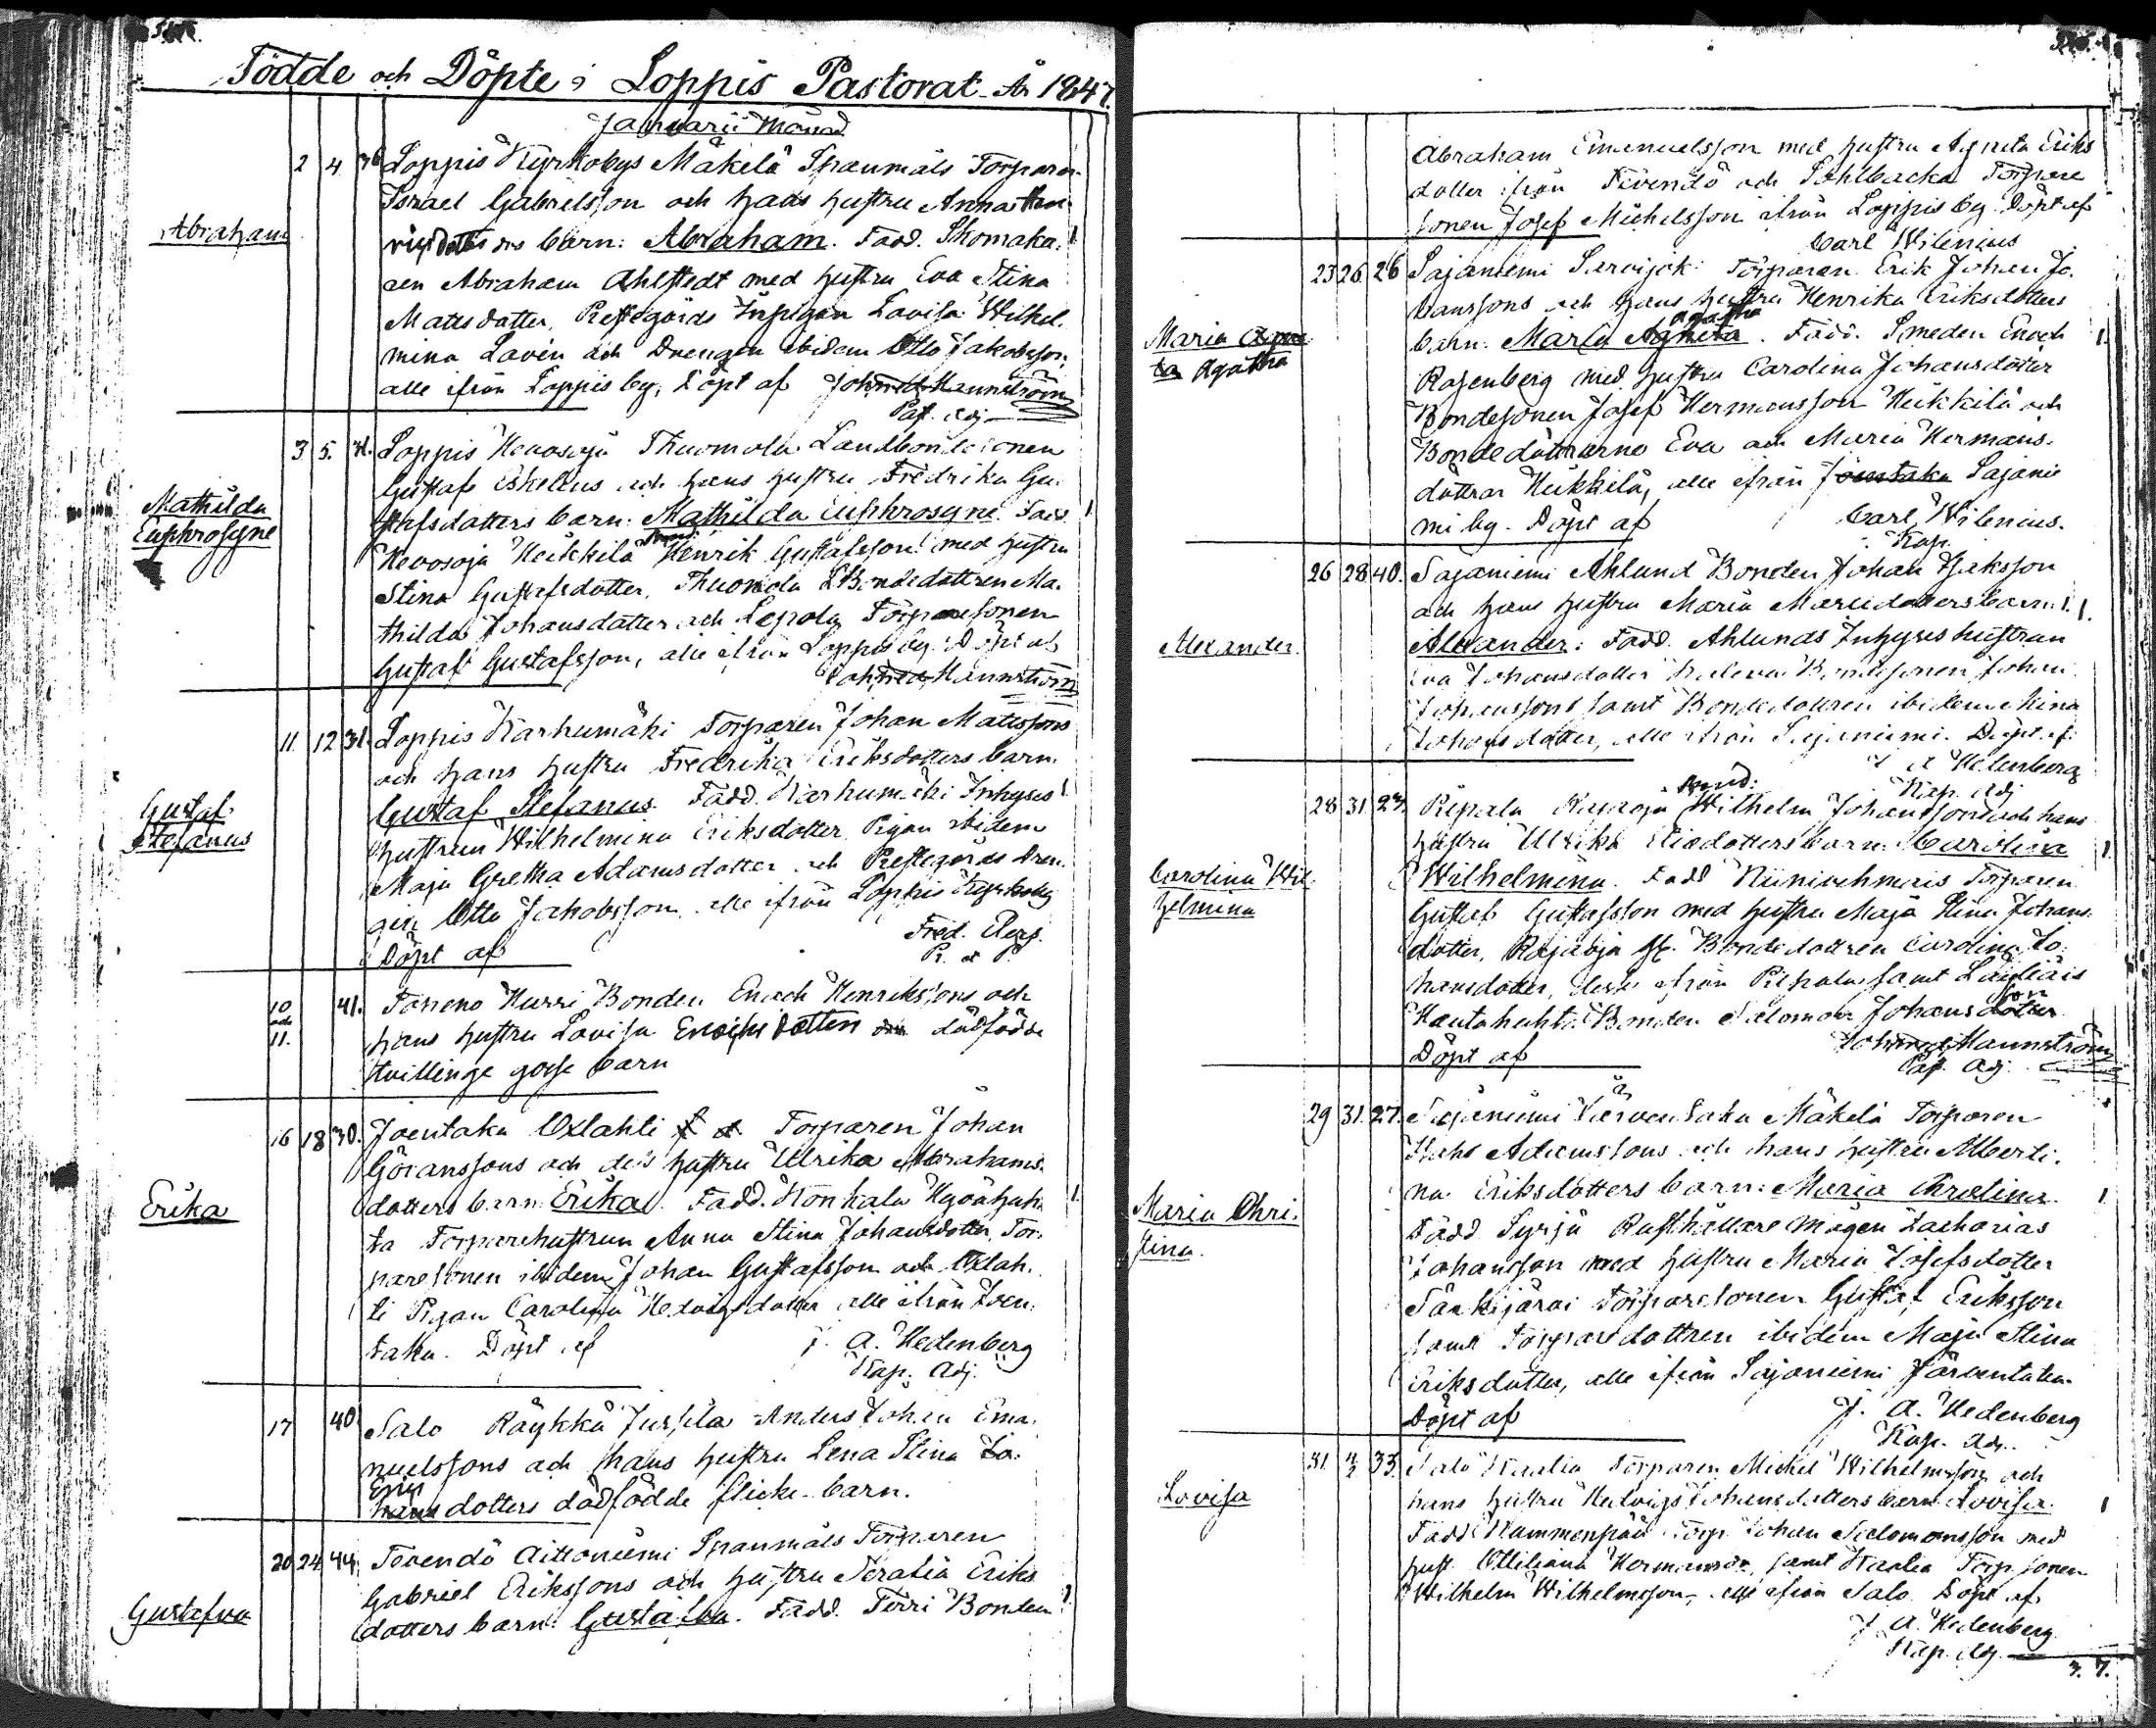 Födde och Döpte i Loppis Pastorat År 1847.
Januarii Månad
Abraham
2 4 36 Loppis Kyrkobys Mäkelä Spanmåls Torparen
Israel Gabrielsson och hans hustru Anna Hen-
riksdotters barn: Abraham. Fadd. Skomaka- 1
ren Abraham Ahlstedt med hustru Eva Stina
Mattsdotter, Prestegårds Inpigan Lovisa Wilhel-
mina Lavén och Drengen ibidem Otto Jakobsson,
alle ifrån Loppis by, Döpt af Joh. Fred. Hannström
Past. Adj.
Mathilda
Euphrosyne
3 5. Loppis Hevosoja Thuomola Landbondesonen
Gustaf Eskelius och hans hustru Fredrika Gu-
stafsdotters barn: Mathilda Euphrosyne. Fadd. 1
Hevosoja Heikkilä Henrik Gustafsson med hustru
Stina Gustafsdotter, Thuomola LBondedottren Ma-
thilda Johansdotter och Lepola Torparesonen
Gustaf Gustafsson, alle ifrån Loppis by. Döpt af
Joh. Fred. Hannström
Gustaf
Stefanus
11. 12 31. Loppis Karhumäki Torparen Johan Matssons
och hans hustru Fredrika Eriksdotters barn
Gustaf Stefanus. Fadd. Karhumäki Inhyses 1
hustrun Wilhelmina Eriksdotter, Pigan ibidem
Maja Gretha Adamsdotter och Prestegårds Dren-
gen Otto Jakobsson, alle ifrån Loppis Kyrkoby
Döpt af Fred. Berg.
10
och
11. 41. Torreno Hurri Bonden Enoch Henrikssons och
hans hustru Lovisa Enochsdotters dödfödde
tvillinge gosse barn
Erika
16 18 30. Joentaka Oxlahti Torparen Johan
Göranssons och dess hustru Ulrika Abrahams-
dotters barn: Erika. Fadd. Konkala
ta Torparehustrun Anna Stina Johansdotter, Tor-
paresonen ibidem Johan Gustafsson och Oxlah-
ti Pigan Carolina Hedvigsdotter alle ifrån Joen-
taka. Döpt af J. A. Hedenberg
Kap. Adj.
17 40 Salo Räykkä Anders Johan Ema-
nuelssons och hans hustru Lena Stina Jo-
Eriks
hans dotters dödfödde flicke-barn.
Gustafva
20 24 44. Tevendö Aittoniemi Spanmåls Torparen
Gabriel Erikssons och hustru Serafia Eriks
dotters barn: Gustafva. Fadd. Torri Bonden 1
Abraham Emanuelsson med hustru Agneta Eriks
dotter ifrån Tevendö och Sahlbacka Torpare
sonen Josef Michelsson ifrån Loppis by. Döpt af
Carl Wilenius
Maria Agne
ta Agatha
23 26. 26 Sajaniemi Särvijoki Torparen Erik Johan Jo-
hanssons och hans hustru Henrika Eriksdotters
Agatha
barn: Maria Agneta. Fadd. Smeden Enoch 1.
Rosenberg med hustru Carolina Johansdotter
Bondesonen Josef Hermansson Heikkilä och
Bondedöttrarne Eva och Maria Hermans-
döttrar Heikkilä, alle ifrån Joentaka Sajanie
mi by. Döpt af Carl Wilenius.
Kap.
Alexander.
26 28 40. Sajaniemi Ahlund Bonden Johan Isaksson
och hans hustru Maria Mariedotters barn: 1.
Alexander: Fadd. Ahlunds Inhyses hustrun
Eva Johansdotter Bondesonen Johan
Johansson samt Bondedottren ibidem Stina
Johansdotter, alle ifrån Sajaniemi. Döpt af
J A Hedenberg
Kap. Adj.
Carolina Wil-
helmina
28 31. 23. Pilpala Wilhelm Johanssons och hans
hustru Ulrika Eliedotters barn: Carolina 1.
Wilhelmina. Fadd Torparen
Gustaf Gustafsson med hustru Maja Stina Johans-
dotter, Bondedottren Carolina Jo-
hansdotter, ifrån Pilpala samt Läyliäis
son
Kautahuhta Bonden Salomon Johans dotter
Döpt af Joh. Fred. Hannström
Past. Adj.
Maria Chri-
stina.
29 31. 27. Sajaniemi Järventaka Mäkelä Torparen
Isaks Adamssons och hans hustru Alberti-
na Eriksdotters barn: Maria Carolina. 1
Fadd Syrjä Rusthållare mågen Zacharias
Johansson med hustru Maria Josefsdotter
Särkijärvi Torparesonen Gustaf Eriksson
samt Torparedottren ibidem Maja Stina
Eriksdotter, alle ifrån Sajaniemi Järventaka.
Döpt af J. A. Hedenberg
Kap. Adj.
Lovisa
31. 33. Salo Kaalia Torparen Michel Wilhelmsson och
hans hustru Hedvigs Johansdotters barn: Lovisa. 1
Fadd: Kummenpää Torp. Johan Salomonsson med
hust. Ottiliana Hermansdr. samt Kaalia Torp.sonen
Wilhelm Wilhelmsson, alle ifrån Salo. Döpt af
J A. Hedenberg
Kap. Adj.
3. 7.